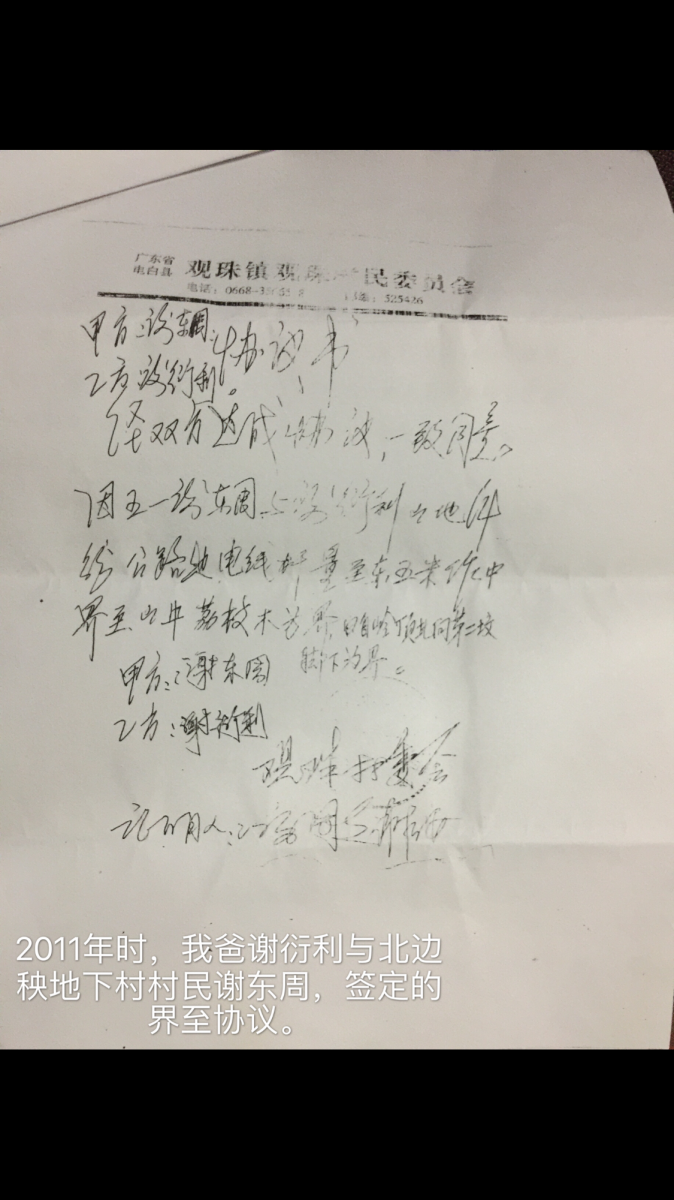 广东省
电白县
观珠镇观珠村民委员会
电话：0668-3 编：525426
甲方：谢东周：
协议书
乙方谢衍利。
经双方达成协议，一致同意。
因五一谢东周与谢衍利山地纠
纷公路边电线杆量至东五米作中
界至山中荔枝木为界 岭顶 向第二坟
脚下为界。
甲方：谢东周
乙方：谢衍利
观珠村委会
证明人：
2011年时，我爸谢衍利与北边
秧地下村村民谢东周，签定的
界至协议。